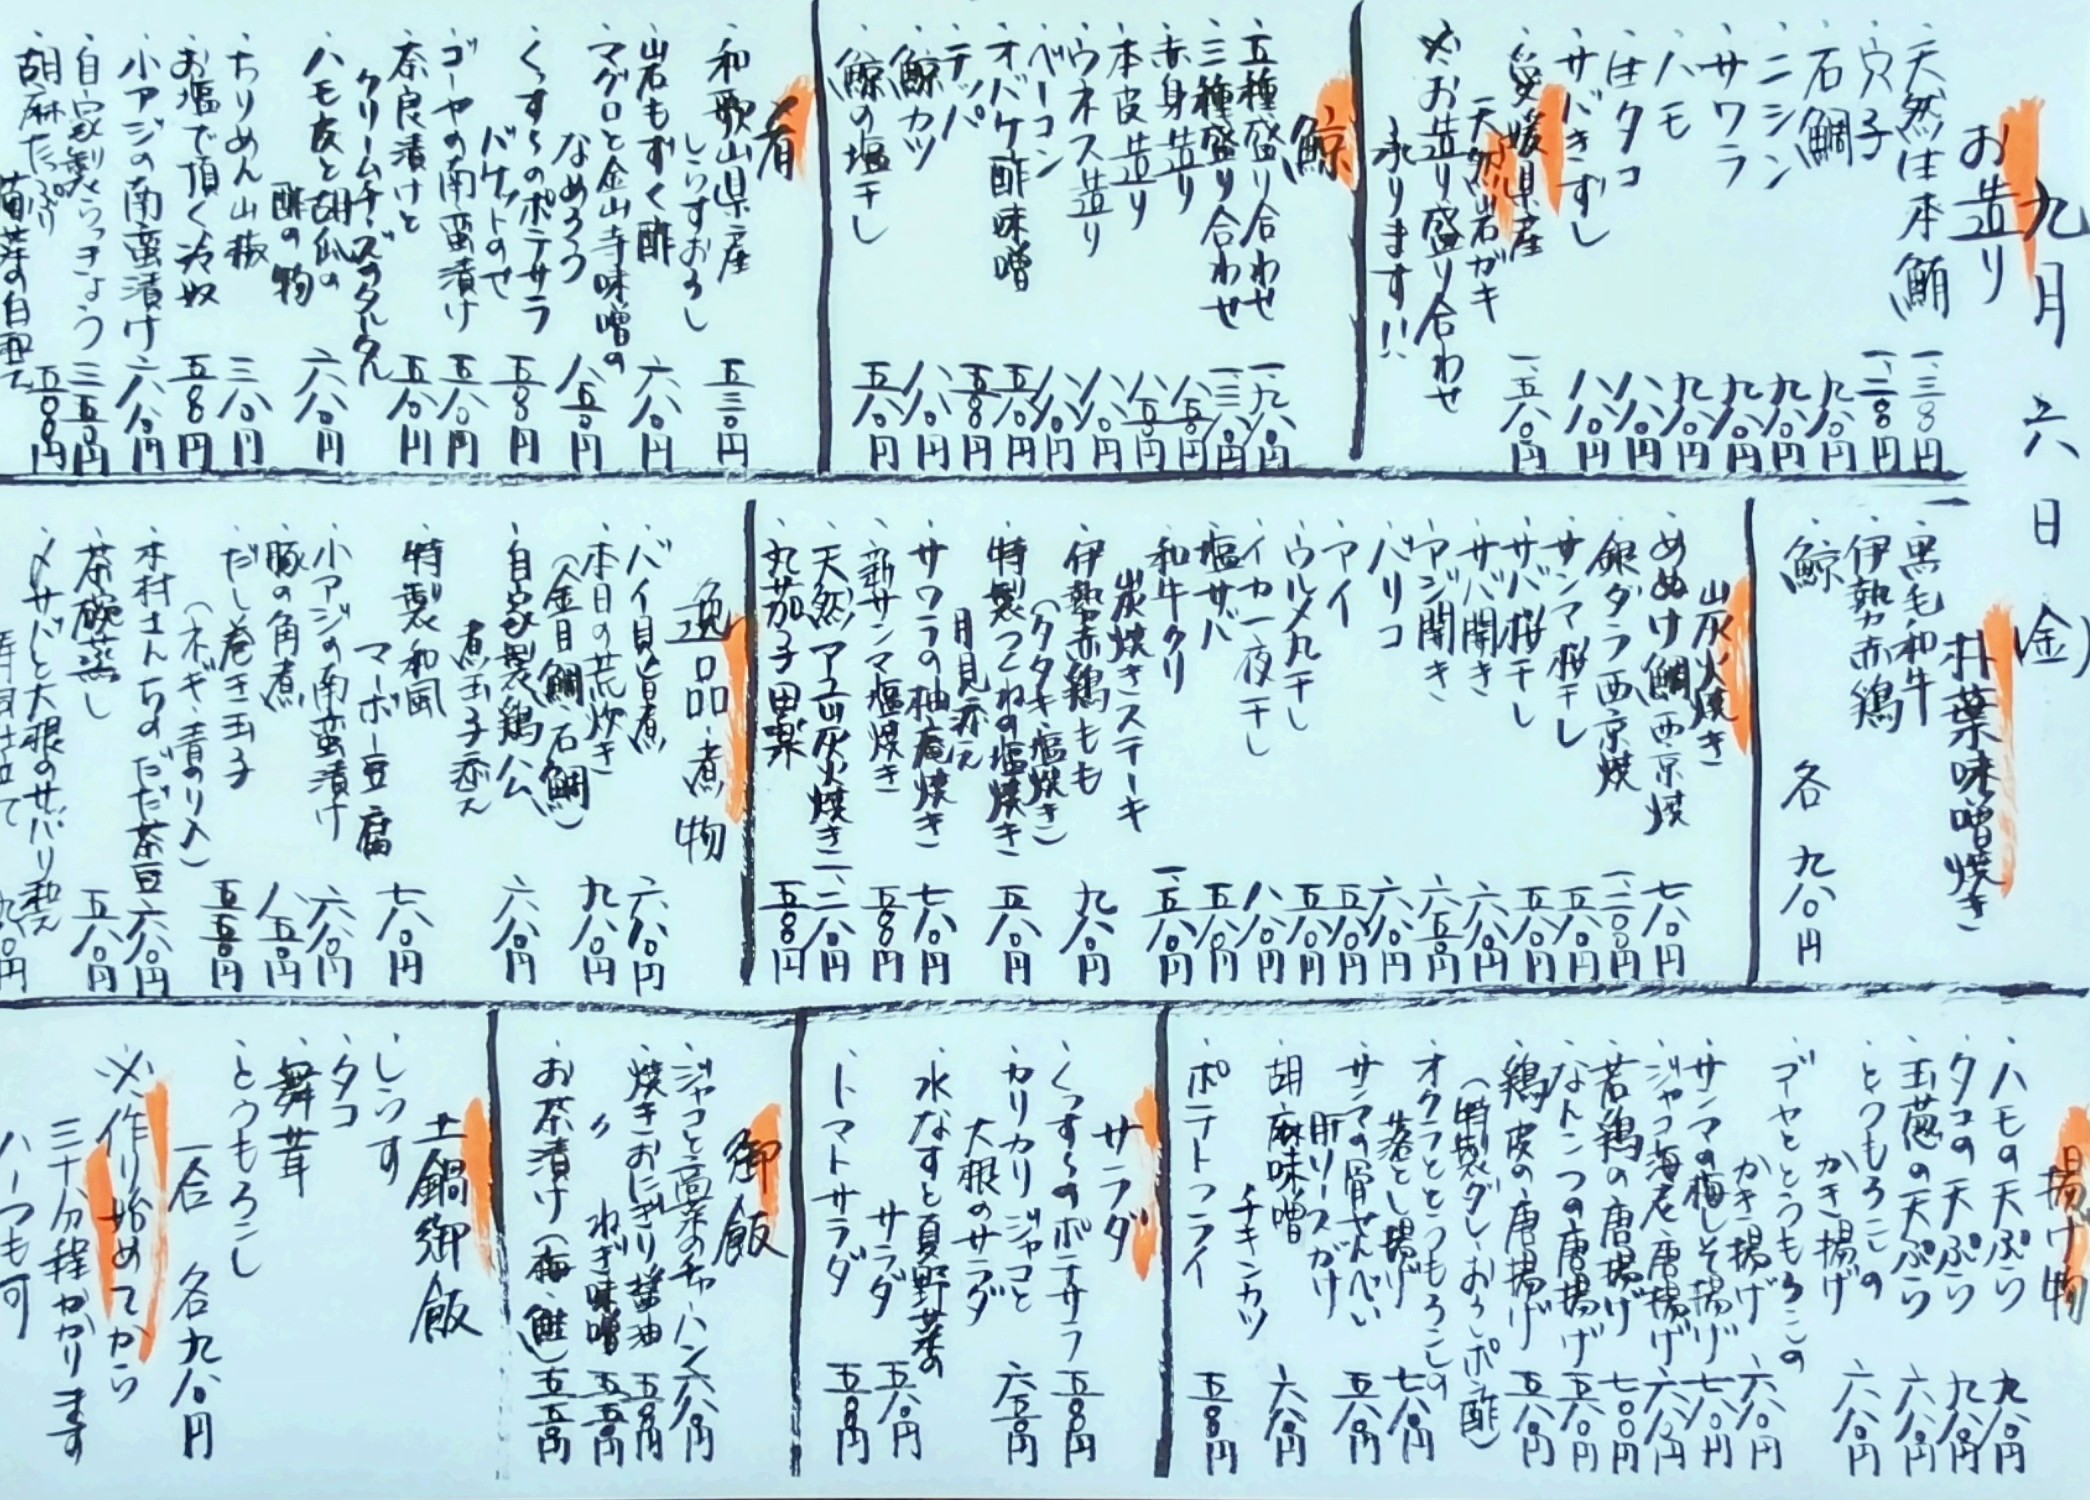 九月六日(金)
お造り
・天然生本鮪 一、三〇〇円
・穴子 一、二〇〇円
・石鯛 九八〇円
・ニシン 九八〇円
・サワラ 九八〇円
・ハモ 九八〇円
・生タコ 八八〇円
・サバきずし 八八〇円
・愛媛県産
天然岩ガキ 一、五八〇円
※お造り盛り合わせ
承ります!!
鯨
・五種盛り合わせ 一、九八〇円
・三種盛り合わせ 一、三八〇円
・赤身造り 八五〇円
・本皮造り 八五〇円
・ウネス造り 八八〇円
・ベーコン 八八〇円
・オバケ酢味噌 五八〇円
・テッパ 五八〇円
・鯨カツ 八八〇円
・鯨の塩干し 五八〇円
肴
・和歌山県産
しらすおろし 五三〇円
・岩もずく酢 六八〇円
・マグロと金山寺味噌の
なめろう 八五〇円
・くっすぅのポテサラ
バケットのせ 五五〇円
・ゴーヤの南蛮漬け 五八〇円
・奈良漬けと
クリームチーズのタルタル 五八〇円
・ハモ皮と胡瓜の
酢の物 六八〇円
・ちりめん山椒 三八〇円
・お塩で頂く冷奴 五五〇円
・小アジの南蛮漬け 六八〇円
・自家製らっきょう 三五〇円
・胡麻たっぷり
菊菜の白和え 五五〇円
朴葉味噌焼き
・黒毛和牛
・伊勢赤鶏
・鯨
各 九八〇円
炭火焼き
・めぬけ鯛西京焼 七八〇円
・銀ダラ西京焼 一、二〇〇円
・サンマ桜干し 五八〇円
・サバ桜干し 五八〇円
・サバ開き 六八〇円
・アジ開き 六五〇円
・バリコ 六八〇円
・アイ 五八〇円
・ウルメ丸干し 五八〇円
・イカ一夜干し 八八〇円
・塩サバ 五八〇円
・和牛クリ
炭焼きステーキ 一、五八〇円
・伊勢赤鶏もも
(タタキ・塩焼き) 九八〇円
・特製つくねの塩焼き
月見添え 五八〇円
・サワラの柚庵焼き 七八〇円
・新サンマ塩焼き 五八〇円
・天然アユ炭火焼き 二、二八〇円
・丸茄子田楽 五五〇円
逸品・煮物
・バイ貝旨煮 六八〇円
・本日の荒炊き
(金目鯛・石鯛) 九八〇円
・自家製鶏ハム
煮玉子添え 六八〇円
・特製和風
マーボー豆腐 七八〇円
・小アジの南蛮漬け 六八〇円
・豚の角煮 八五〇円
・だし巻き玉子
(ネギ・青のり入) 五五〇円
・木村さんちのだだ茶豆 六八〇円
・茶碗蒸し 五八〇円
・〆サバと大根のサバリ和え
揚げ物
・ハモの天ぷら 九八〇円
・タコの天ぷら 九八〇円
・玉葱の天ぷら 六八〇円
・とうもろこしの
かき揚げ 六八〇円
・ゴーヤととうもろこしの
かき揚げ 六八〇円
・サンマの梅しそ揚げ 七八〇円
・ジャコ海老唐揚げ 六八〇円
・若鶏の唐揚げ 七〇〇円
・なんこつの唐揚げ 五八〇円
・鶏皮の唐揚げ 五八〇円
(特製ダレ・おろしポン酢)
・オクラととうもろこしの
落とし揚げ 七八〇円
・サンマの骨せんべい
肝ソースがけ 五八〇円
・胡麻味噌
チキンカツ 六八〇円
・ポテトフライ 五五〇円
サラダ
・くっすぅのポテサラ 五五〇円
・カリカリジャコと
大根のサラダ 六五〇円
・水なすと夏野菜の
サラダ 五八〇円
・トマトサラダ 五五〇円
御飯
・ジャコと高菜のチャーハン 六八〇円
・焼きおにぎり 醤油 五五〇円
・〃 ねぎ味噌 五五〇円
・お茶漬け(梅・鮭) 五五〇円
土鍋御飯
・しらす
・タコ
・舞茸
・とうもろこし
一合 各九八〇円
※作り始めてから
三十分程かかります
ハーフも可